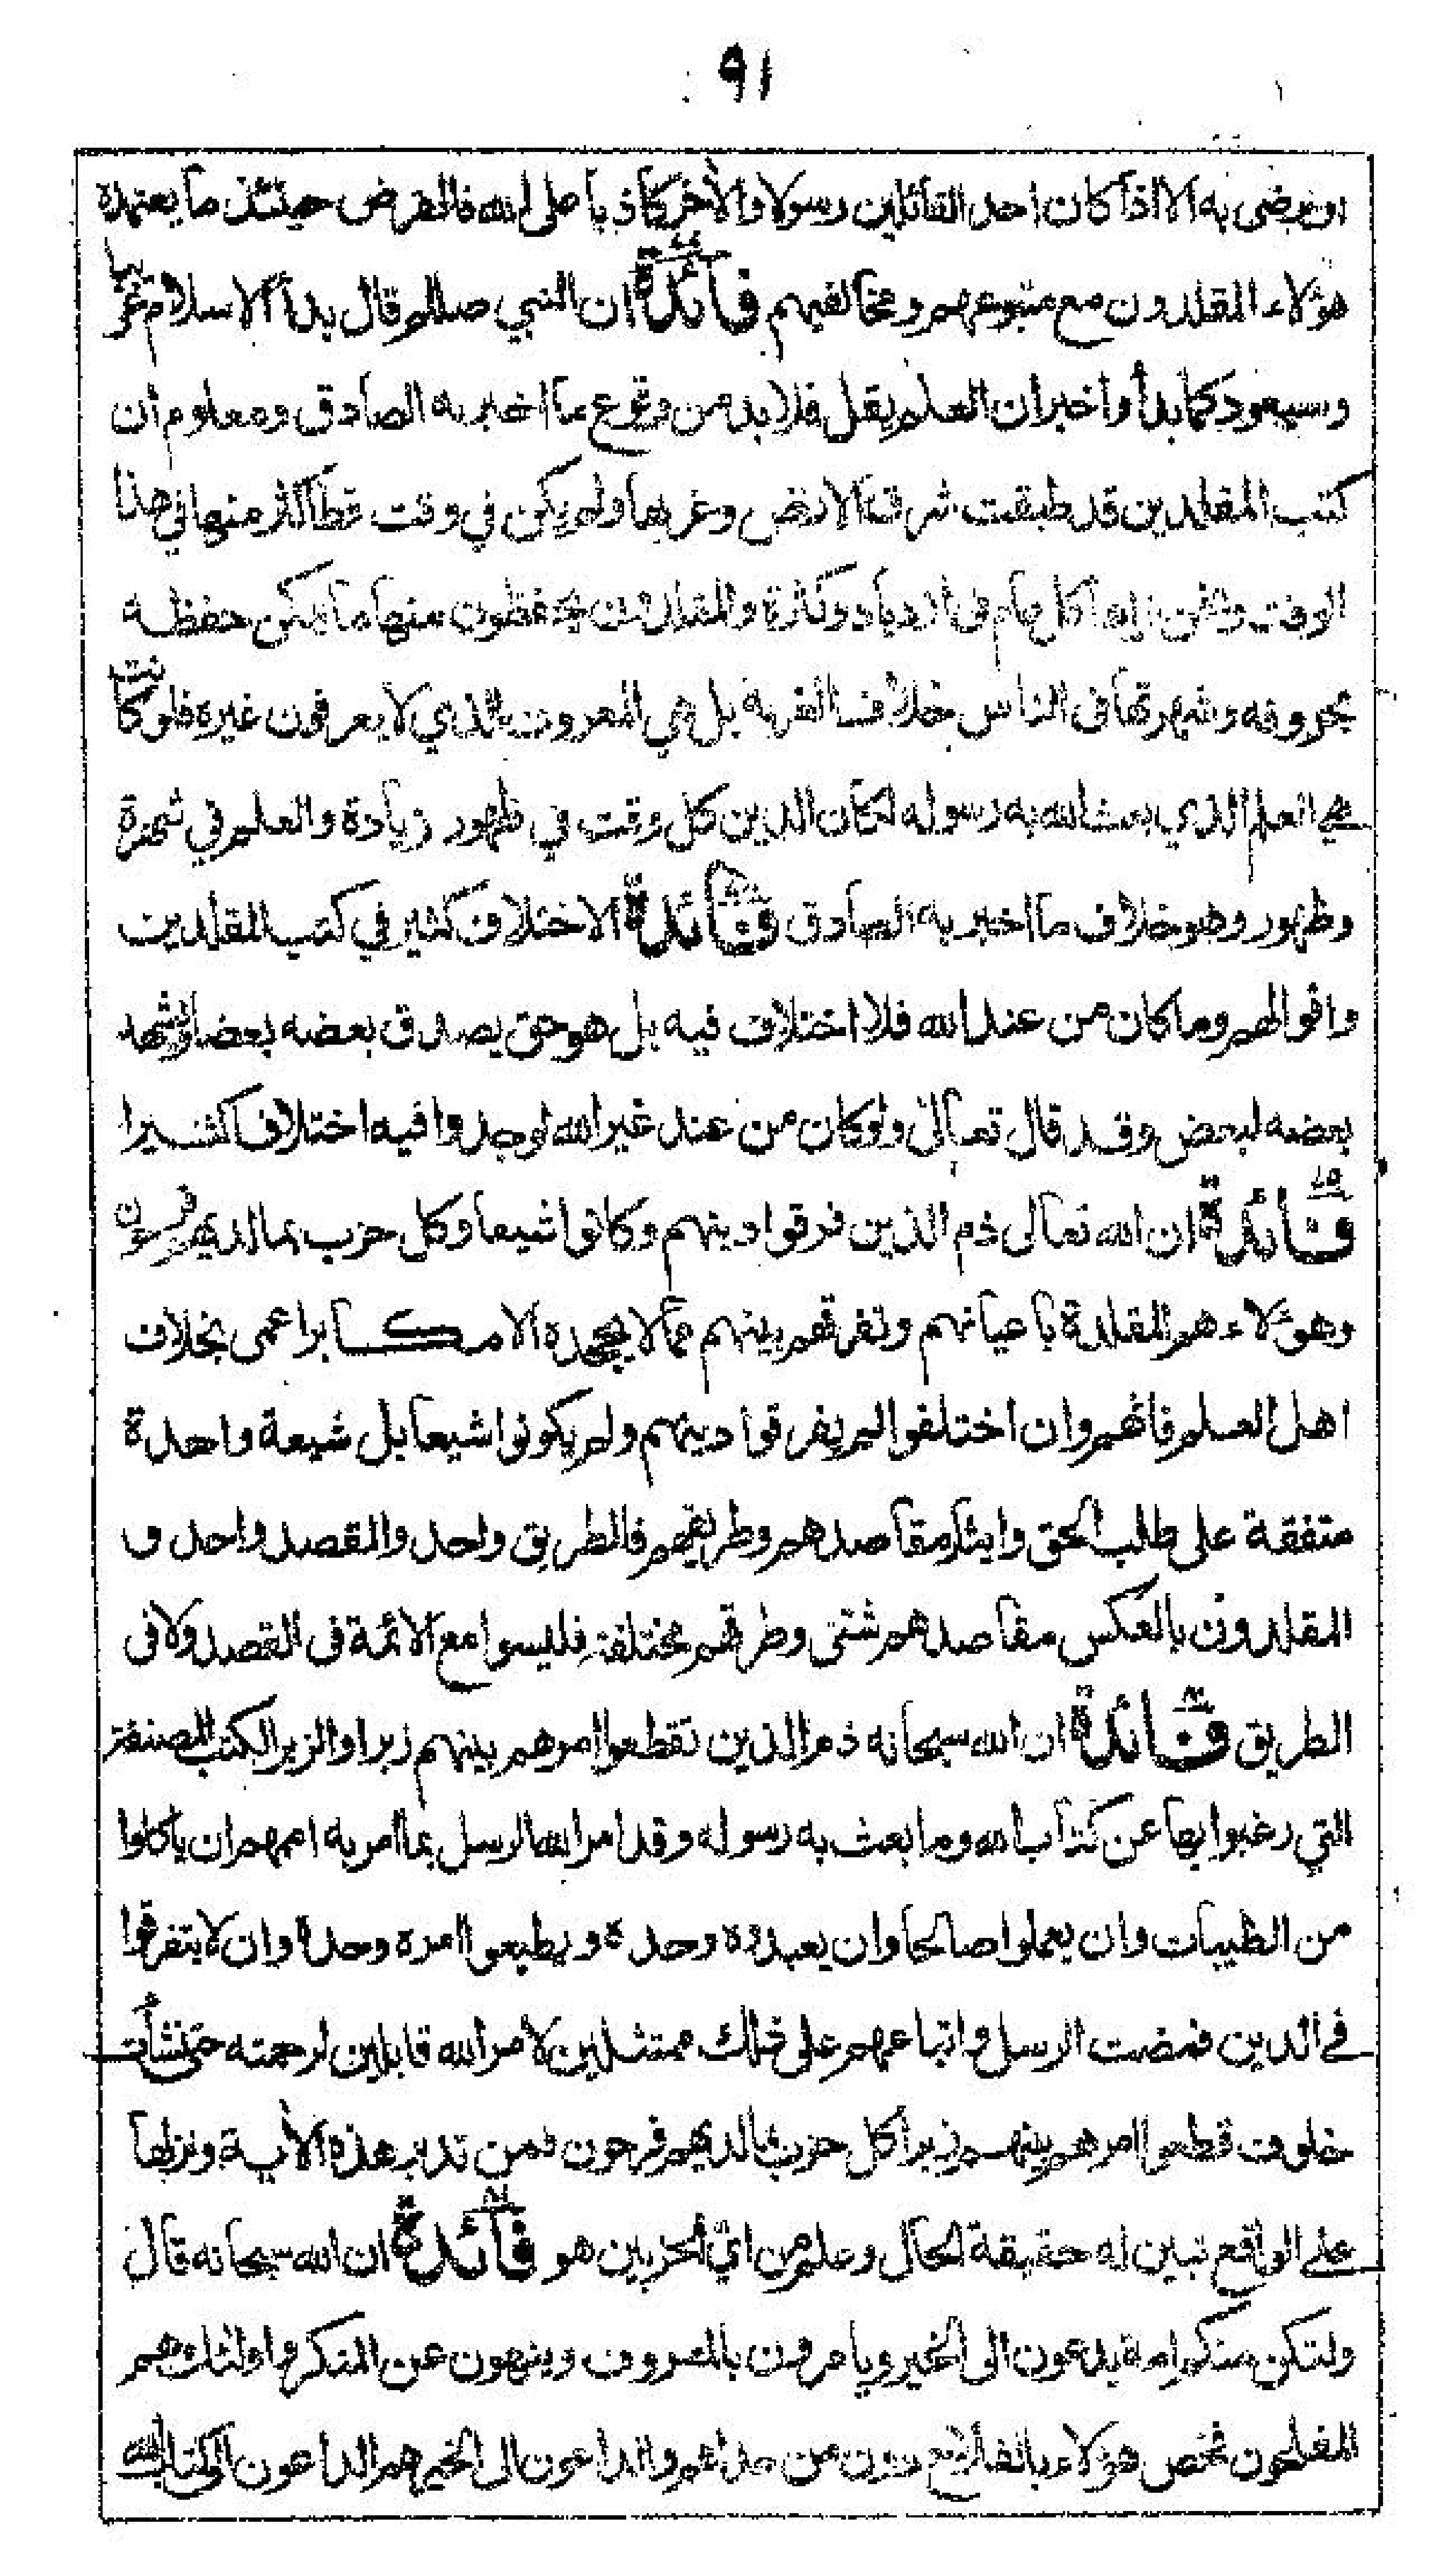 ٩١
ان يرضى به الا اذا كان احد القائلين رسولا والأخر كاذبا على الله فالفرض حينئذ ما يعتمده
هؤلاء المقلدون مع متبوعهم ومخالفيهم فائدة ان النبي صللم قال بدأ الاسلام غريبا
وسيعود كما بدأ واخبر ان العلم يقل فلا بد من وقوع ما اخبر به الصادق ومعلوم ان
كتب المقلدين قد طبقت شرق الارض وغربها ولم يكن في وقت قط اكثر منها في هذا
الوقت ونحن نراها كل عام في ازدياد وكثرة والمقلدون يحفظون منها ما يمكن حفظه
بحروفه وشهرتها في الناس خلاف الغربة بل هي المعروف الذي لا يعرفون غيره فلو كانت
هي العلم الذي بعث الله به رسوله لكان الدين كل وقت في ظهور زيادة والعلم في شهرة
وظهور وهو خلاف ما اخبر به الصادق فائدة الاختلاف كثير في كتب المقلدين
واقوالهم وما كان من عند الله فلا اختلاف فيه بل هو حق يصدق بعضه بعضا ويشهد
بعضه لبعض وقد قال تعالى ولو كان من عند غير الله لوجدوا فيه اختلافا كثيرا
فائدة ان الله تعالى ذم الذين فرقوا دينهم وكانوا شيعا وكل حزب بما لديهم فرحون
وهؤلاء هم المقلدة باعيانهم وتفرقهم بينهم مما لا يجحده الا مكابر اعمى بخلاف
اهل العلم فانهم وان اختلفوا لم يفرقوا دينهم ولم يكونوا شيعا بل شيعة واحدة
متفقة على طلب الحق وايثار مقاصدهم وطريقهم فالطريق واحد والمقصد واحد و
المقلدون بالعكس مقاصدهم شتى وطرقهم مختلفة فليسوا مع الائمة في القصد ولا في
الطريق فائدة ان الله سبحانه ذم الذين تقطعوا امرهم بينهم زبرا والزبر الكتب المصنفة
التي رغبوا بها عن كتاب الله وما بعث به رسوله وقد امر الله الرسل بما امر به اممهم ان ياكلوا
من الطيبات وان يعملوا صالحا وان يعبدوه وحده ويطيعوا امره وحده وان لا يتفرقوا
في الدين فمضت الرسل واتباعهم على ذلك ممتثلين لامر الله قابلين لرحمته حتى نشأت
خلوف قطعوا امرهم بينهم زبرا كل حزب بما لديهم فرحون فمن تدبر هذه الأية ونزلها
على الواقع تبين له حقيقة الحال وعلم من اي الحزبين هو فائدة ان الله سبحانه قال
ولتكن منكم امة يدعون الى الخير ويامرون بالمعروف وينهون عن المنكر واولئك هم
المفلحون فخص هؤلاء بالفلاح دون من عداهم والداعون الى الخير هم الداعون الى كتاب الله